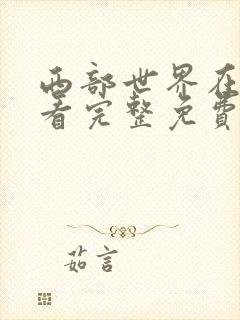 西部世界在
看完整免费
茹言